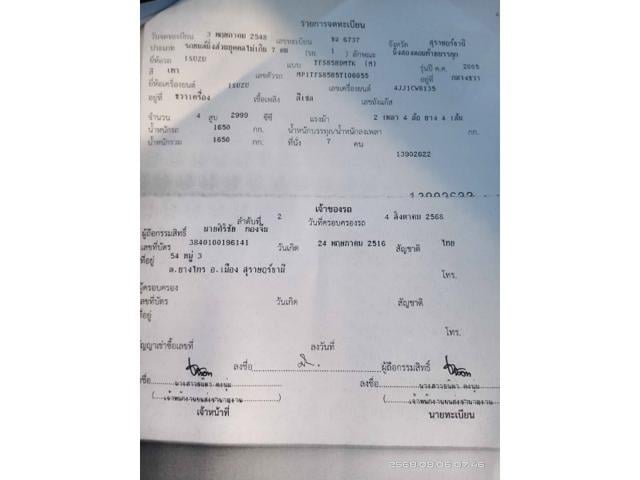 รายการจดทะเบียน
วันจดทะเบียน 3 พฤษภาคม 2548 เลขทะเบียน 6737 จังหวัด สุราษฎร์ธานี
ประเภท รถยนต์นั่งส่วนบุคคลไม่เกิน 7 คน (รย. 1) ลักษณะ นั่งสองตอนท้ายบรรทุก
ยี่ห้อรถ ISUZU แบบ (M) รุ่นปี ค.ศ. 2005
สี เทา เลขตัวรถ MP1TFS85H5T106055 อยู่ที่ กลางขวา
ยี่ห้อเครื่องยนต์ ISUZU เลขเครื่องยนต์ 4JJ1CW8135
อยู่ที่ ขวาเครื่อง เชื้อเพลิง ดีเซล เลขถังแก๊ส
จำนวน 4 สูบ 2999 ซีซี แรงม้า 2 เพลา 4 ล้อ ยาง 4 เส้น
น้ำหนักรถ 1650 กก. น้ำหนักบรรทุก/น้ำหนักลงเพลา กก.
น้ำหนักรวม 1650 กก. ที่นั่ง 7 คน
13902622
13902622
เจ้าของรถ
ลำดับที่ 2 วันที่ครอบครองรถ 4 สิงหาคม 2568
ผู้ถือกรรมสิทธิ์ นายศิริชัย ทองจีน
เลขที่บัตร 3840100196141 วันเกิด 24 พฤษภาคม 2516 สัญชาติ ไทย
ที่อยู่ 54 หมู่ 3
ต.บางไทร อ.เมือง สุราษฎร์ธานี โทร.
ผู้ครอบครอง
เลขที่บัตร วันเกิด สัญชาติ
ที่อยู่
โทร.
สัญญาเช่าซื้อเลขที่ ลงวันที่
ลงชื่อ ผู้ถือกรรมสิทธิ์
ลงชื่อ นางสาวธนิดา คงนุ่ม ลงชื่อ นางสาวธนิดา คงนุ่ม
(เจ้าพนักงานขนส่งชำนาญงาน) (เจ้าพนักงานขนส่งชำนาญงาน)
เจ้าหน้าที่ นายทะเบียน
2568.08.06 07:46